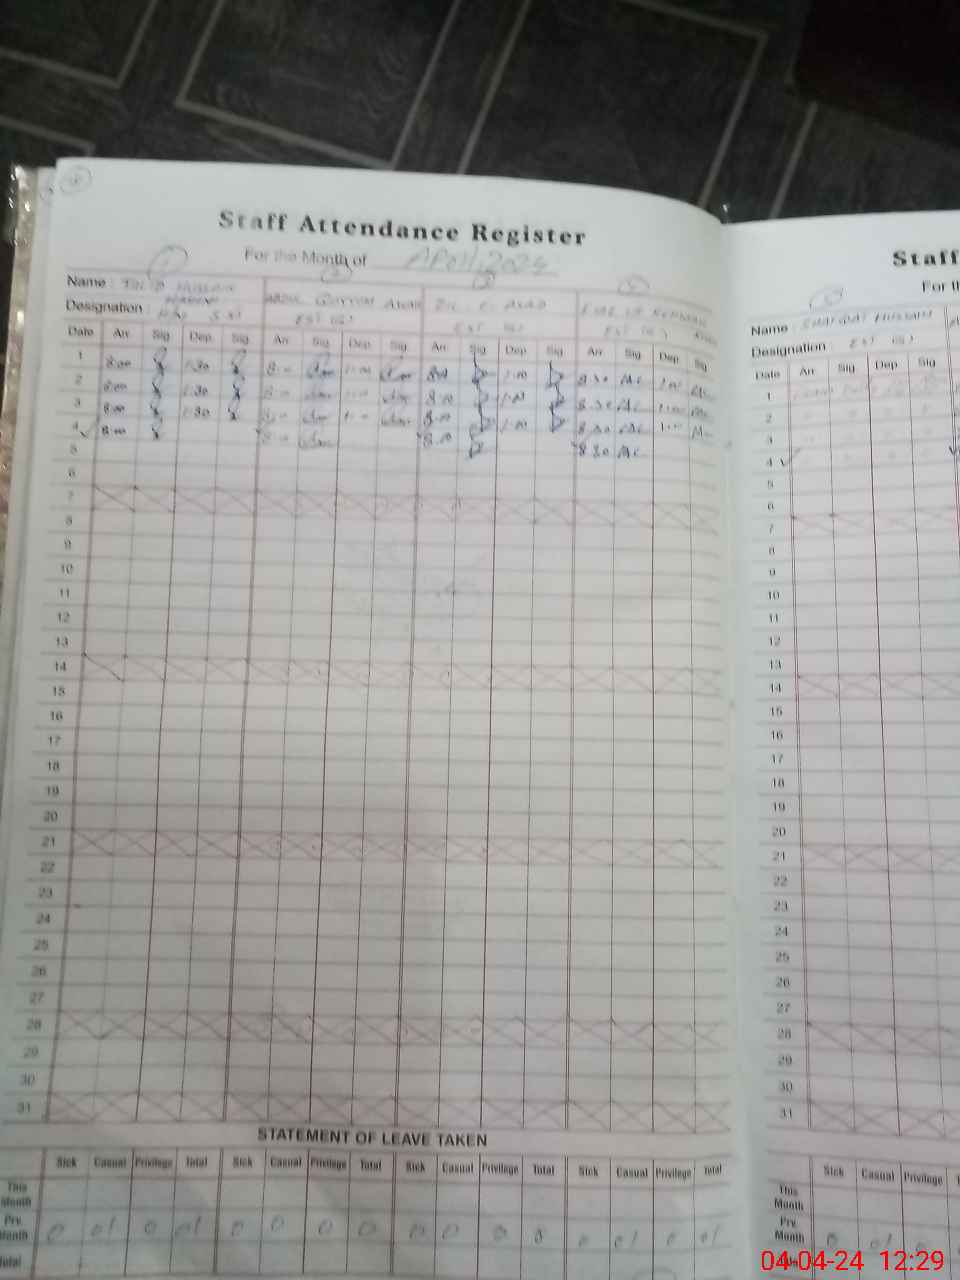 Staff Attendance Register
For the Month of April 2024
Name : HUSSAIN
Designation : SST
ABDUL QAYYUM AWAN
EST (G)
EST (G)
EST (G)
Date Arr Sig Dep Sig Arr Sig Dep Sig Arr Sig Dep Sig Arr Sig Dep Sig
1 8:00 1:30 8:00 1:00 8:00 1:00 8:30 1:00
2 8:00 1:30 8:00 1:00 8:00 1:00 8:30 1:00
3 8:00 1:30 8:00 1:00 8:00 1:00 8:30 1:00
4 8:00 8:00 8:00 8:30
5
6
7
8
9
10
11
12
13
14
15
16
17
18
19
20
21
22
23
24
25
26
27
28
29
30
31
STATEMENT OF LEAVE TAKEN
Sick Casual Privilege Total Sick Casual Privilege Total Sick Casual Privilege Total Sick Casual Privilege Total
This Month
Prv. Month 0 01 0 01 0 0 0 0 0 0 0 0 0 01 0 01
Total
Staff
For th
Name : HUSSAIN
Designation EST (G)
Date Arr Sig Dep Sig
1
2
3
4
5
6
7
8
9
10
11
12
13
14
15
16
17
18
19
20
21
22
23
24
25
26
27
28
29
30
31
Sick Casual Privilege
This Month
Prv. Month 0 01 0
04-04-24 12:29